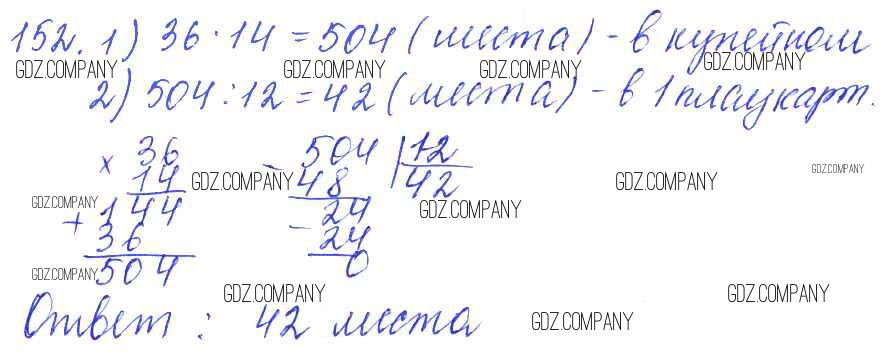 152. 1) 36 · 14 = 504 (места) - в купейном
GDZ.COMPANY GDZ.COMPANY GDZ.COMPANY GDZ.COMPANY
2) 504 : 12 = 42 (места) - в 1 плацкарт.
× 36 - 504 | 12
14 GDZ.COMPANY 48 42 GDZ.COMPANY GDZ.COMPANY
GDZ.COMPANY + 144 24 GDZ.COMPANY
36 - 24
GDZ.COMPANY 504 0
GDZ.COMPANY GDZ.COMPANY
Ответ : 42 места GDZ.COMPANY